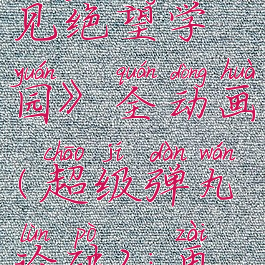 见绝望学
yuán quán dòng huà
园》 全动画
chāo jí dàn wán
(超级弹丸
lún pò zài
论破), 再